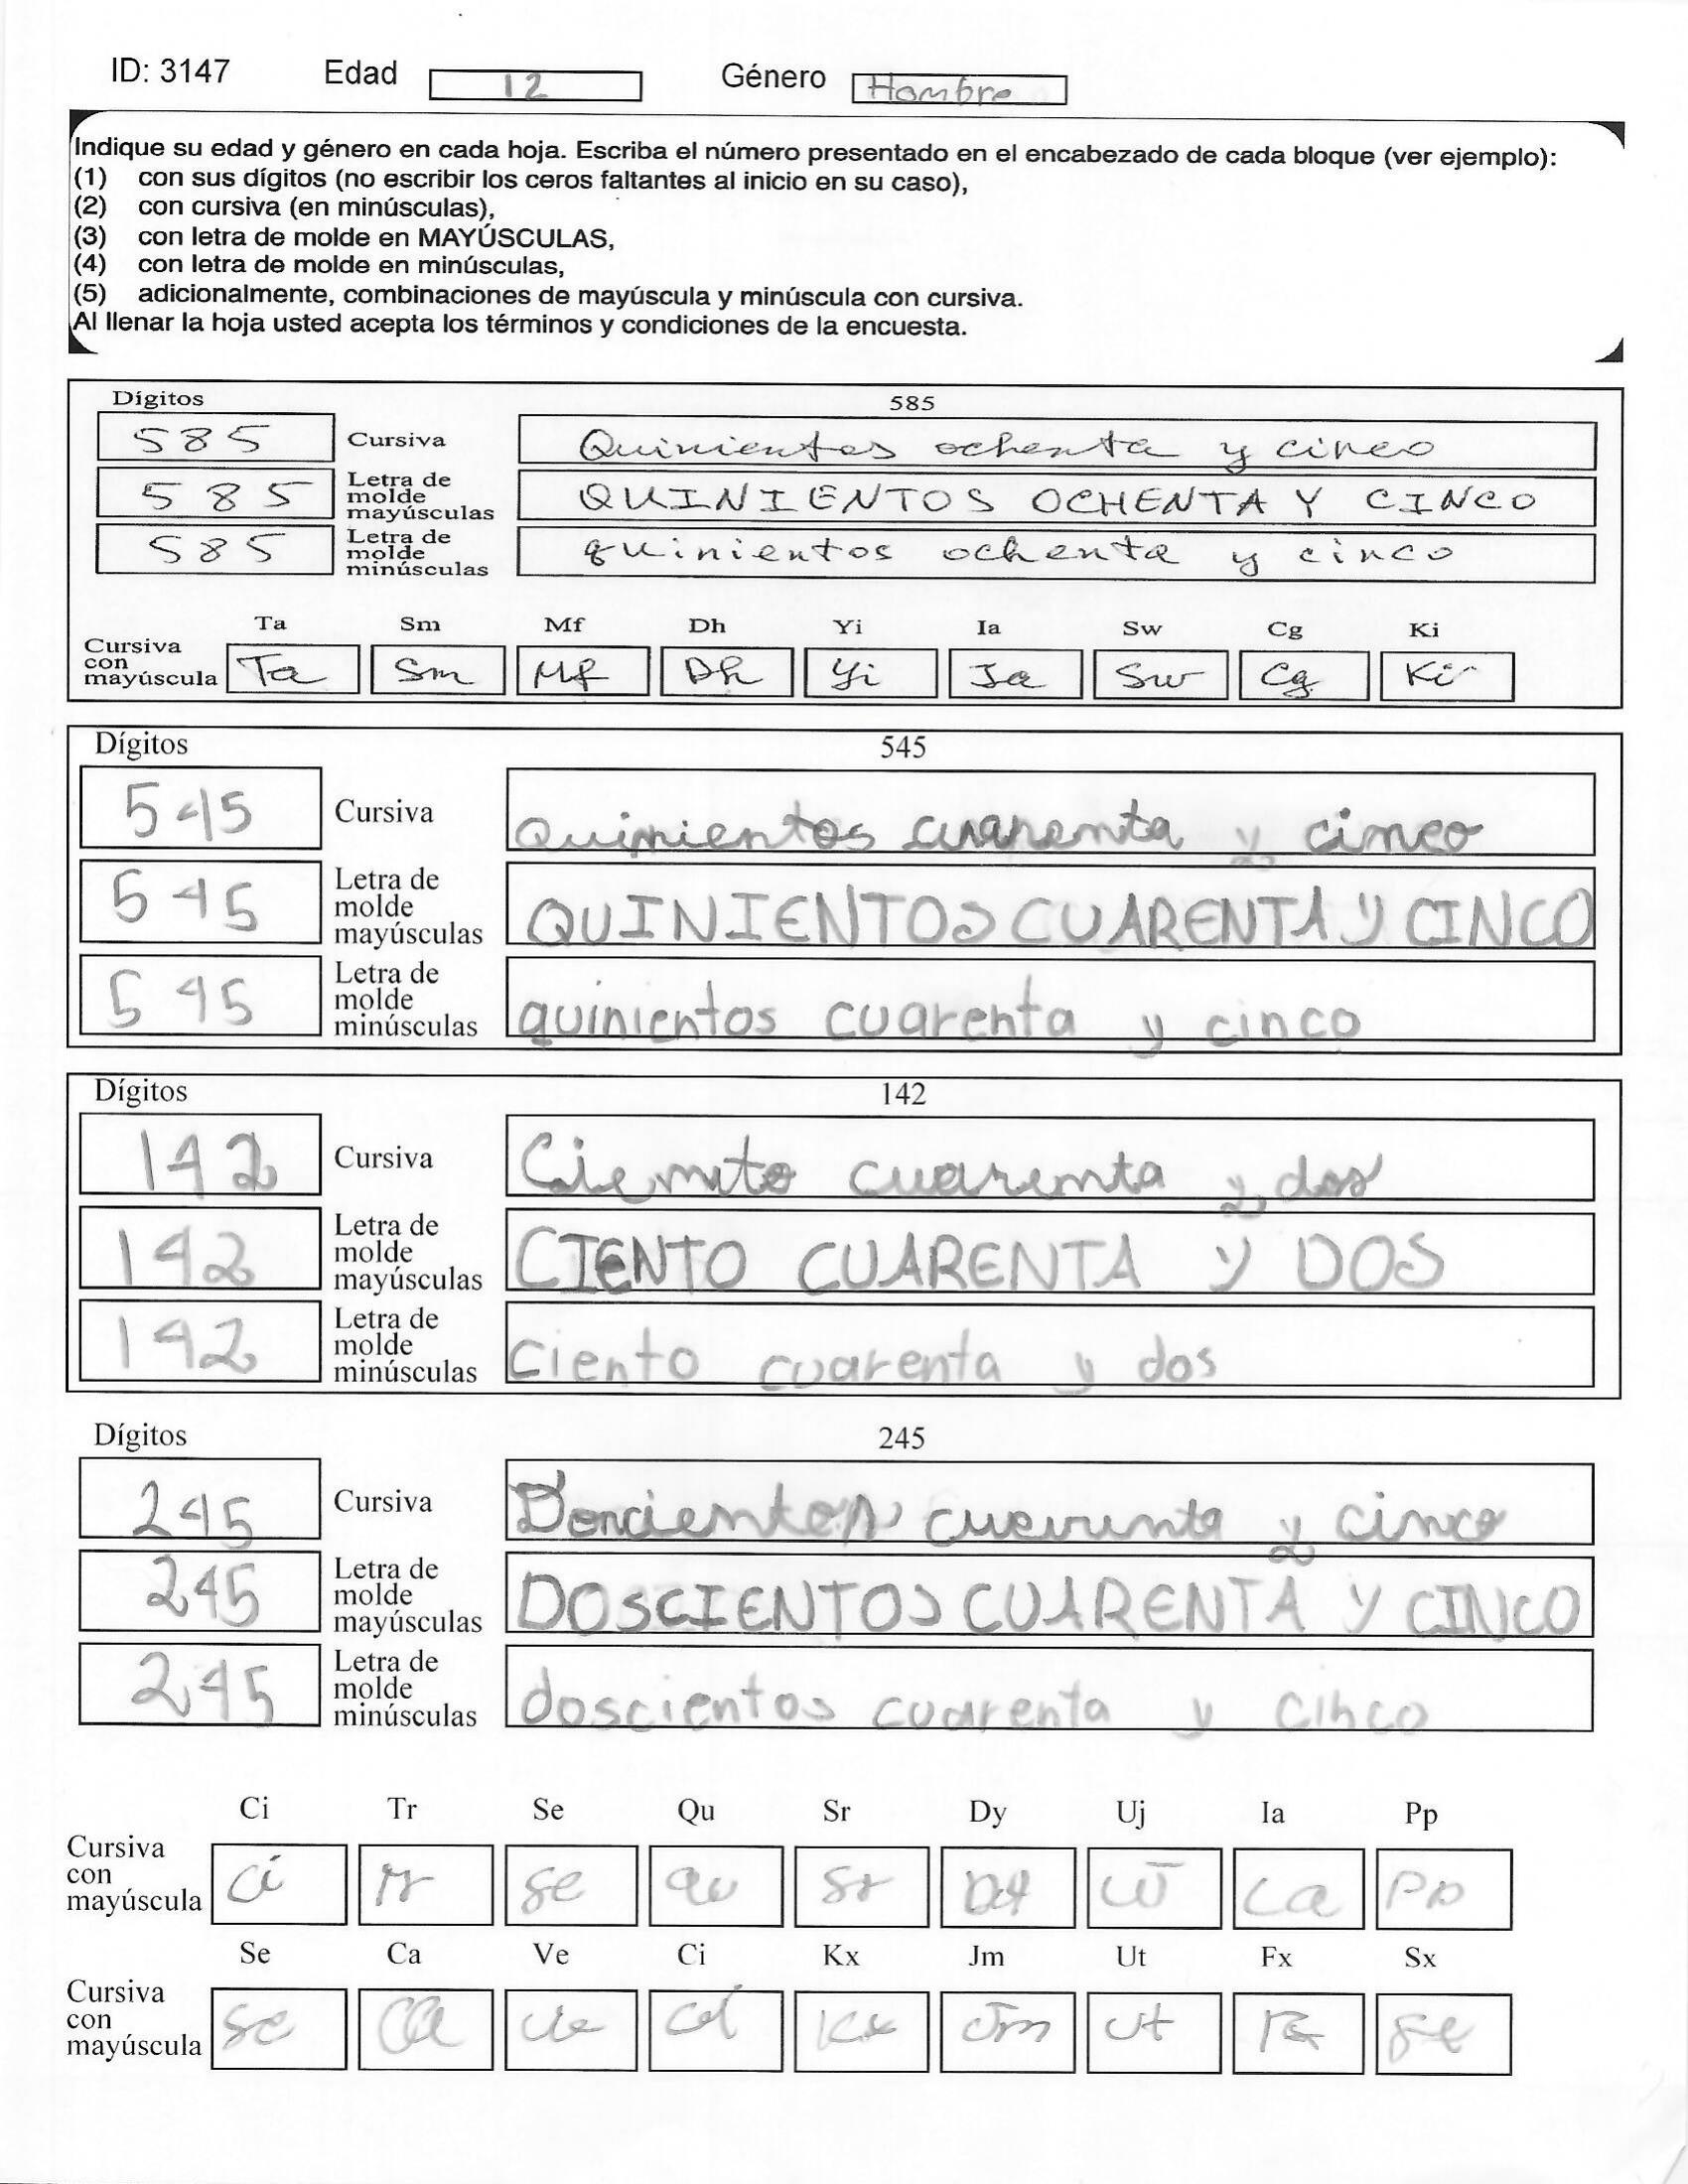 ID: 3147 Edad 12 Género Hombre
Indique su edad y género en cada hoja. Escriba el número presentado en el encabezado de cada bloque (ver ejemplo):
(1) con sus dígitos (no escribir los ceros faltantes al inicio en su caso),
(2) con cursiva (en minúsculas),
(3) con letra de molde en MAYÚSCULAS,
(4) con letra de molde en minúsculas,
(5) adicionalmente, combinaciones de mayúscula y minúscula con cursiva.
Al llenar la hoja usted acepta los términos y condiciones de la encuesta.
Dígitos 585
585 Cursiva Quinientos ochenta y cinco
585 Letra de molde mayúsculas QUINIENTOS OCHENTA Y CINCO
585 Letra de molde minúsculas quinientos ochenta y cinco
Ta Sm Mf Dh Yi Ia Sw Cg Ki
Cursiva con mayúscula Ta Sm Mf Dh Yi Ia Sw Cg Ki
Dígitos 545
545 Cursiva quinientos cuarenta y cinco
545 Letra de molde mayúsculas QUINIENTOS CUARENTA Y CINCO
545 Letra de molde minúsculas quinientos cuarenta y cinco
Dígitos 142
142 Cursiva Ciento cuarenta y dos
142 Letra de molde mayúsculas CIENTO CUARENTA Y DOS
142 Letra de molde minúsculas ciento cuarenta y dos
Dígitos 245
245 Cursiva Doscientos cuarenta y cinco
245 Letra de molde mayúsculas DOSCIENTOS CUARENTA Y CINCO
245 Letra de molde minúsculas doscientos cuarenta y cinco
Ci Tr Se Qu Sr Dy Uj Ia Pp
Cursiva con mayúscula Ci Tr Se Qu Sr Dy Pp
Se Ca Ve Ci Kx Jm Ut Fx Sx
Cursiva con mayúscula Se Ca Ve Ci Kx Jm Ut Fx